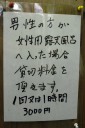 男性の方が
女性用露天風呂
へ入った場合
貸切料金を
頂きます。
1回又は1時間
3000円